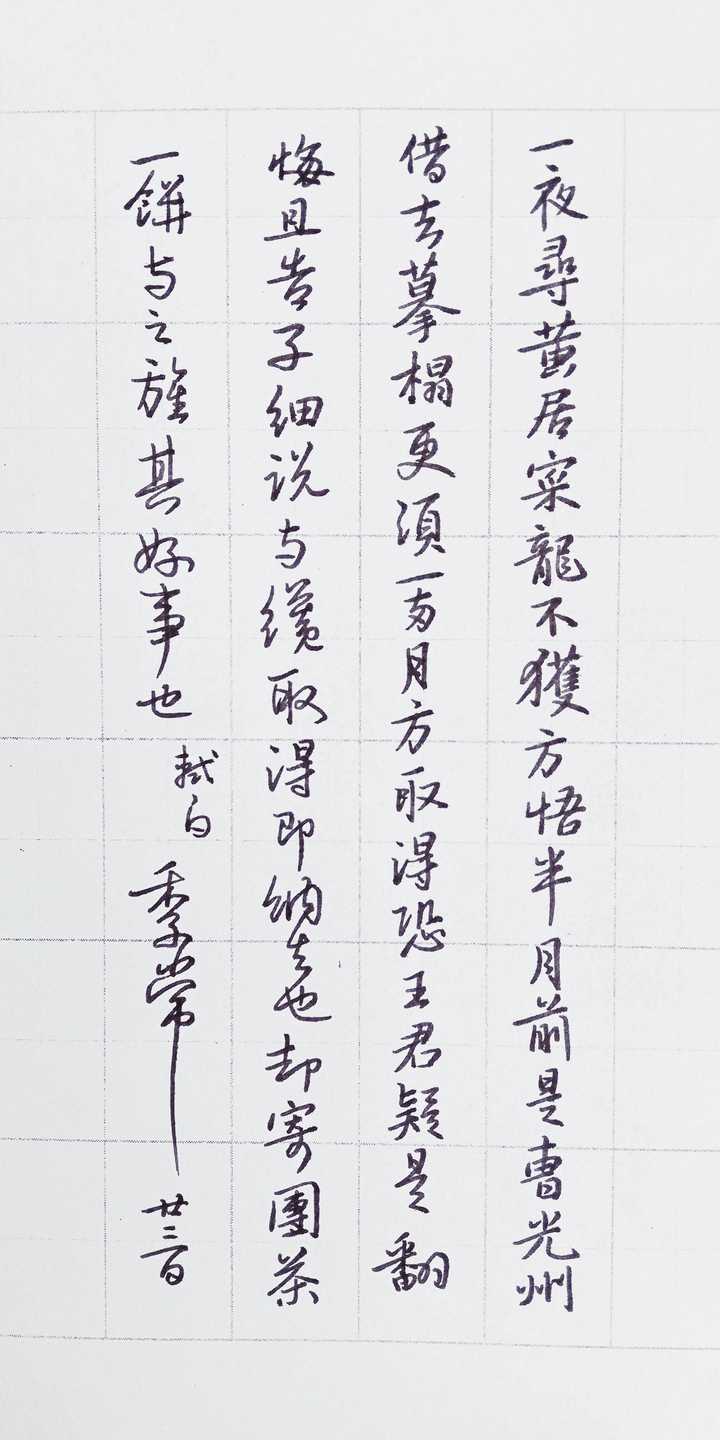 一夜尋黄居寀龍不獲方悟半月前是曹光州
借去摹榻更須一兩月方取得恐王君疑是翻
悔且告子细说与纔取得即纳去也却寄團茶
一餅与之旌其好事也 軾白 季常 廿三日